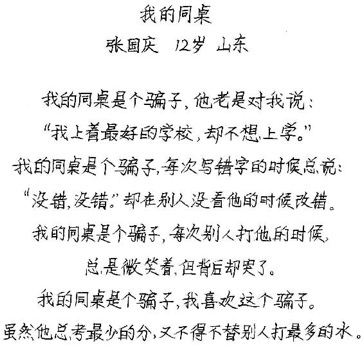 我的同桌
张国庆 12岁 山东
我的同桌是个骗子，他老是对我说：
“我上着最好的学校，却不想上学。”
我的同桌是个骗子，每次写错字的时候总说：
“没错，没错。”却在别人没看他的时候改错。
我的同桌是个骗子，每次别人打他的时候，
总是微笑着，但背后却哭了。
我的同桌是个骗子，我喜欢这个骗子。
虽然他总考最少的分，又不得不替别人打最多的水。